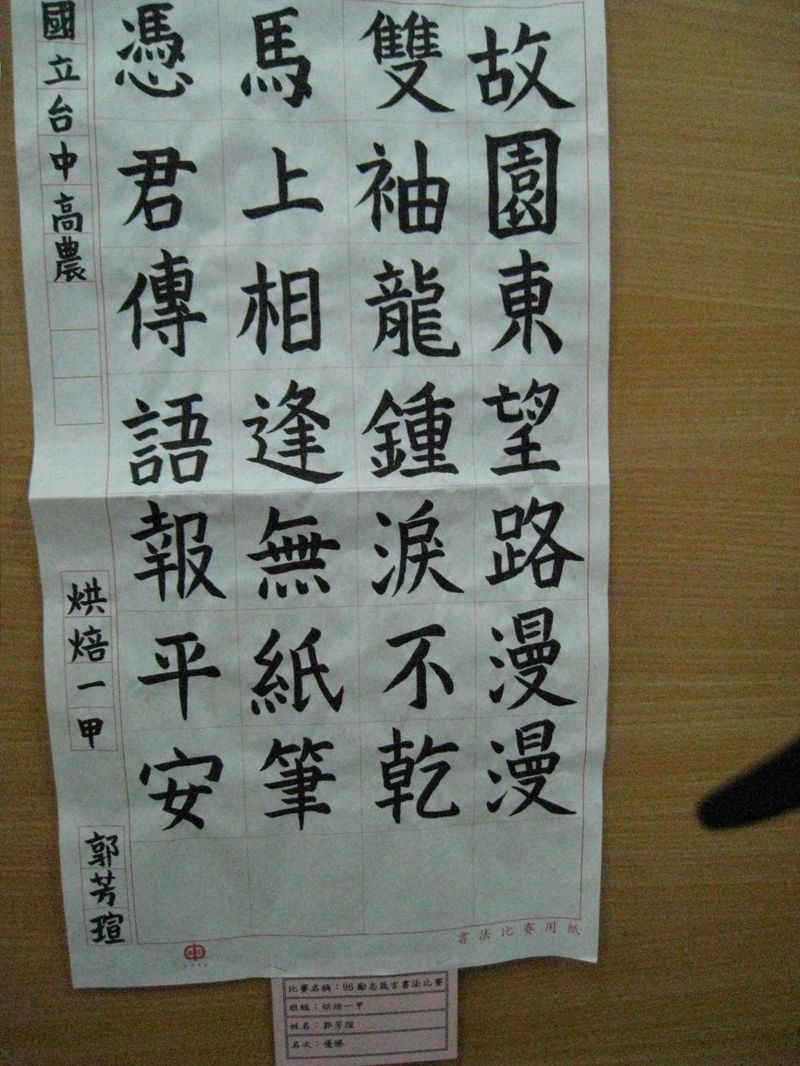 故園東望路漫漫
雙袖龍鍾淚不乾
馬上相逢無紙筆
憑君傳語報平安
國立台中高農
烘焙一甲
郭芳瑄
書法比賽用紙
比賽名稱：96勵志箴言書法比賽
班級：烘焙一甲
姓名：郭芳瑄
名次：優勝